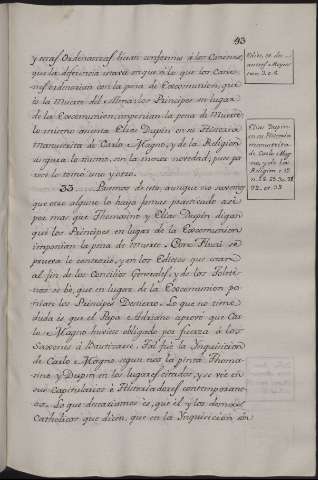 43
y estas Ordenanzas eran conforme á los Canones,
que la diferencia estará en que á lo que los Cano-
nes ordenavan con la pena de Excomunion, que
es la Muerte del Alma, los Principes en lugar
de la Excomunion, imponian la pena de Muerte.
lo mismo cuenta Elias Dupin en su Historia
Manuscrita de Carlo Magno, y de la Religion
33 Buenos de esto, aunque no sabemos
que este alguno lo haya jamas practicado asi
por mas que Thomasino y Elias Dupin digan
que los Principes en lugar de la Excomunion
imponian la pena de Muerte.
prueva lo contrario, y en los Edictos que estan
al fin de los Concilios Generales, y de los Toleti-
nos se ve, que en lugar de la Excomunion po-
nian los Principes Destierro. Lo que no tiene
duda es que el Papa Adriano aprovó que Car-
lo Magno huviese obligado por fuerza á los
Saxones á Bautizarse. Tal fué la Inquisicion
de Carlo Magno, segun nos la pinta Thoma-
sino y Dupin en los lugares citados, y se vé en
sus Capitulares é Historiadores contemporane-
os. Lo que deseariamos es, que él y los demás
Catholicos que dicen, que en la Inquisicion sin
Elias Dupin
en su Historia
manuscrita
de Carlo Mag
no, y de la
Religion